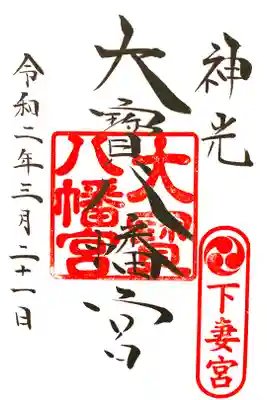 神光
大寶八幡宮
大寶
八幡宮
下妻宮
令和二年三月二十一日